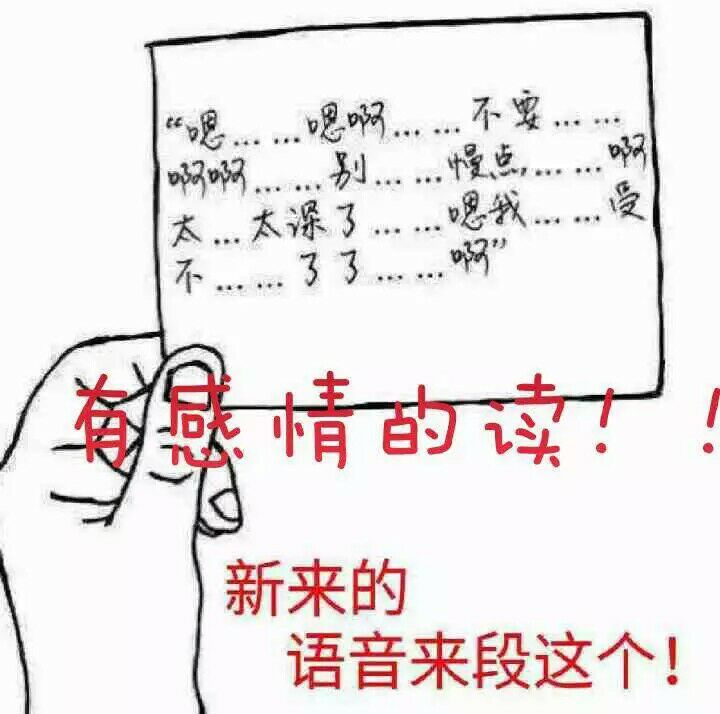 “嗯……嗯啊……不要……
啊啊……别……慢点……啊
太…太深了……嗯我……受
不……了了……啊”
有感情的读！！
新来的
语音来段这个！